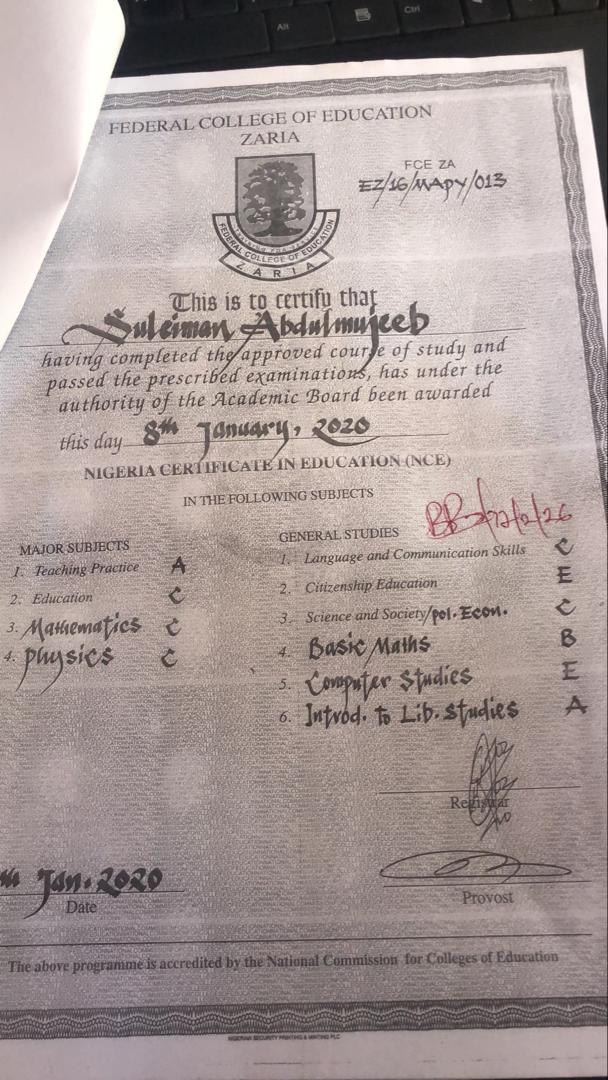 Alt
Ctrl
FEDERAL COLLEGE OF EDUCATION
ZARIA
FCE ZA
EZ/16/MAPY/013
FEDERAL COLLEGE OF EDUCATION
ZARIA
This is to certify that
Suleiman Abdulmujeeb
having completed the approved course of study and
passed the prescribed examinations, has under the
authority of the Academic Board been awarded
this day 8th January, 2020
NIGERIA CERTIFICATE IN EDUCATION (NCE)
IN THE FOLLOWING SUBJECTS
MAJOR SUBJECTS
1. Teaching Practice A
2. Education C
3. Mathematics C
4. Physics C
GENERAL STUDIES
1. Language and Communication Skills C
2. Citizenship Education E
3. Science and Society/pol. Econ. C
4. Basic Maths B
5. Computer Studies E
6. Introd. to Lib. Studies A
Registrar
Jan. 2020
Date
Provost
The above programme is accredited by the National Commission for Colleges of Education
NIGERIAN SECURITY PRINTING & MINTING PLC